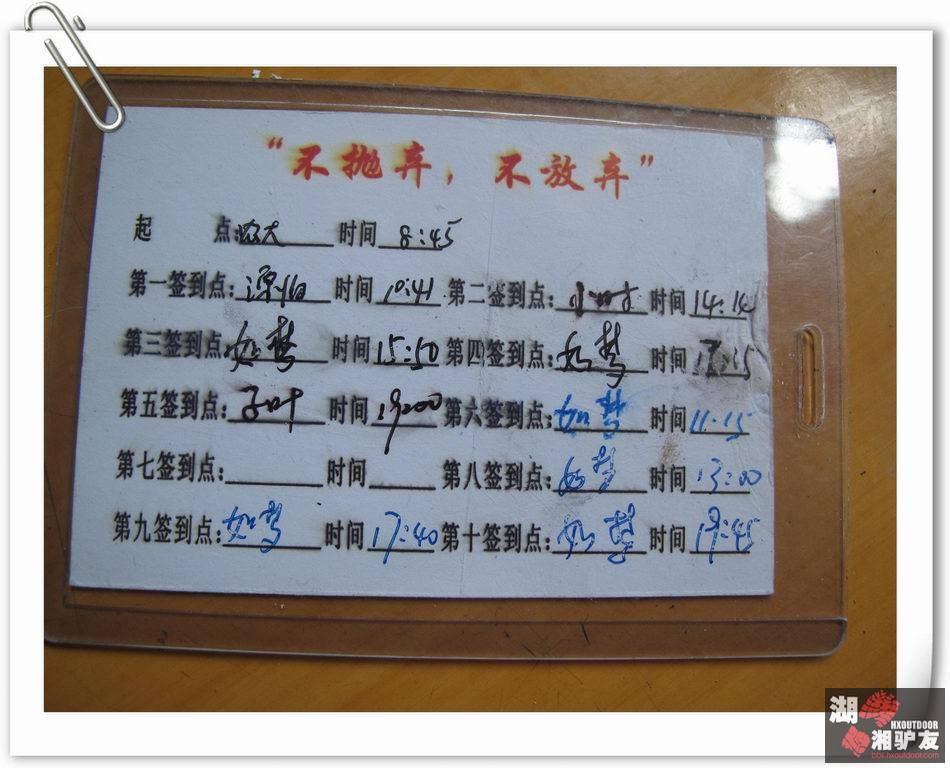 “不抛弃，不放弃”
起 点：农大 时间 8:45
第一签到点： 时间 10:41 第二签到点： 时间 14:14
第三签到点：如梦 时间 15:50 第四签到点：如梦 时间
第五签到点：子叶 时间：19:00 第六签到点：如梦 时间 11:15
第七签到点： 时间 第八签到点：如梦 时间 13:00
第九签到点：如梦 时间 17:40 第十签到点：如梦 时间 19:45
湖湘驴友
HXOUTDOOR
bbs.hxoutdoor.com